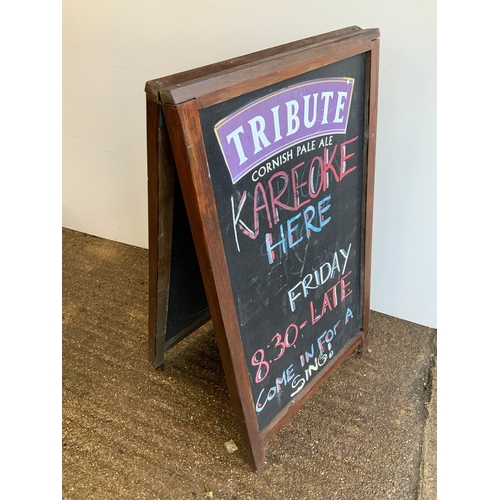 TRIBUTE
CORNISH PALE ALE
KAREOKE
HERE
FRIDAY
8:30-LATE
COME IN FOR A
SING!